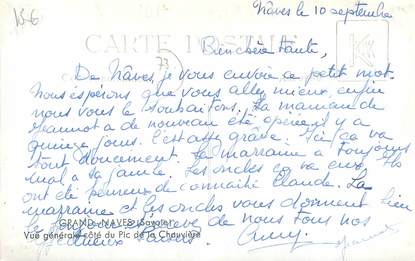 Nâves le 10 septembre
156
CARTE POSTALE
73
Bien chère tante,
De Nâves, je vous envoie ce petit mot.
Nous espérons que vous allez mieux, enfin
nous vous le souhaitons. La maman de
Jeannot a de nouveau été opérée il y a
quinze jours. C'est assez grave. Ici ça va
tout doucement. La marraine a toujours
mal à sa jambe. Les oncles ça va eux. Ils
ont été heureux de connaître Claude. La
marraine et les oncles vous donnent bien
le bonjour. Recevez de nous tous nos
affectueux baisers.
GRAND-NAVES (Savoie)
Vue générale côté du Pic de la Chauvière